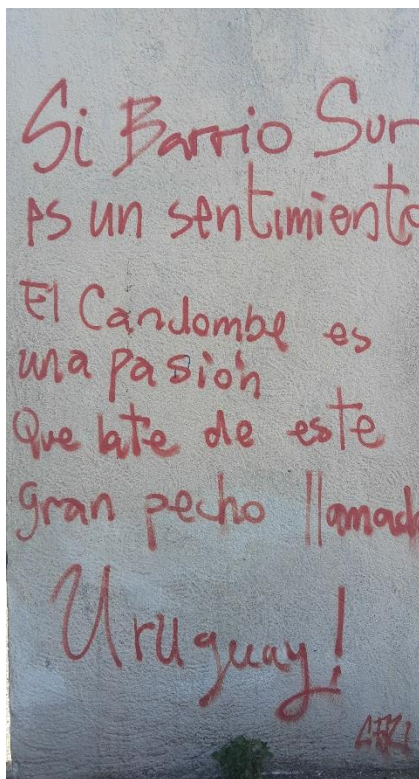 Si Barrio Sur
es un sentimiento
El Candombe es
una pasión
Que late de este
gran pecho llamad
Uruguay!